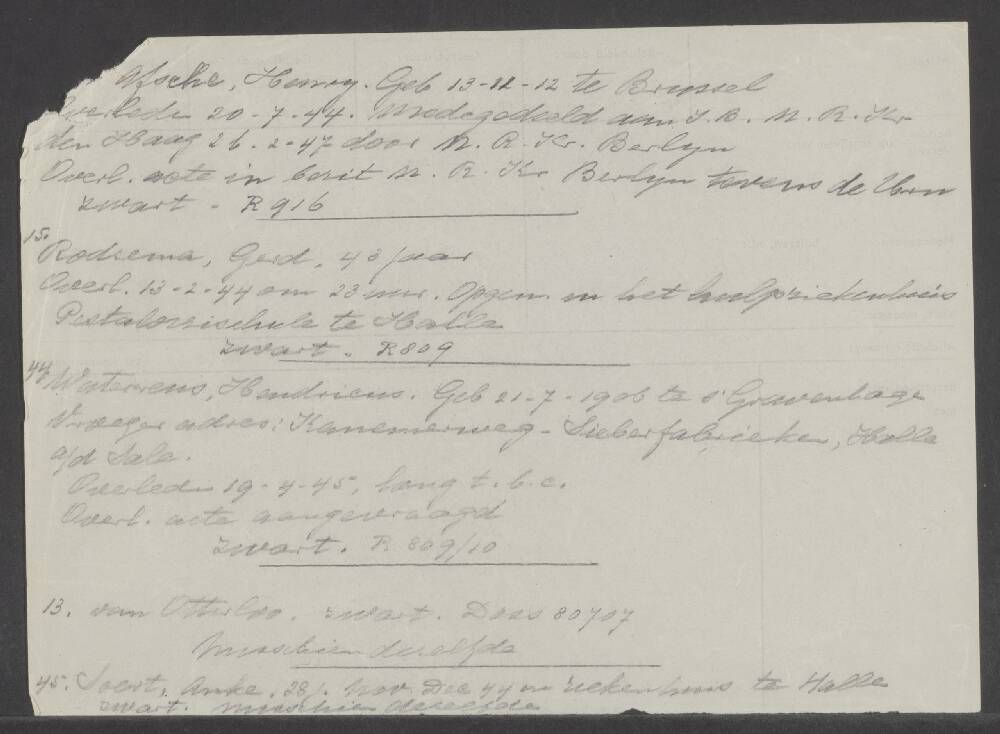 Henry. Geb 13-11-12 te Brussel
Overleden 20-7-44. Medegedeeld aan I.B. N. R. Kr
den Haag 26.2-47 door N. R. Kr. Berlyn
Overl. acte in bezit N. R. Kr Berlyn tevens de Urn
zwart - R 916
15.
Rodsema, Gerd, 43 jaar
Overl. 13-2-44 om 23 uur. Opgen. in het hulpziekenhuis
Pestalozzischule te Halle
zwart. R 809
44.
Hendricus. Geb 21-7-1906 te s'Gravenhage
Vroeger adres: Sieberfabrieken, Halle
a/d Sale.
Overleden 19-4-45, long t.b.c.
Overl. acte aangevraagd
zwart. R 809/10
13. van Otterloo. zwart. Doos 80707
Misschien dezelfde
45. Soert, Anke. 28 j. Nov. Dec 44 in ziekenhuis te Halle
zwart. misschien dezelfde